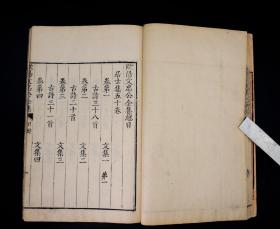 歐陽文忠公全集總目
居士集五十卷
卷第一 文集一
古詩三十八首 第一
卷第二 文集二
古詩二十首
卷第三 文集三
古詩三十一首
卷第四 文集四